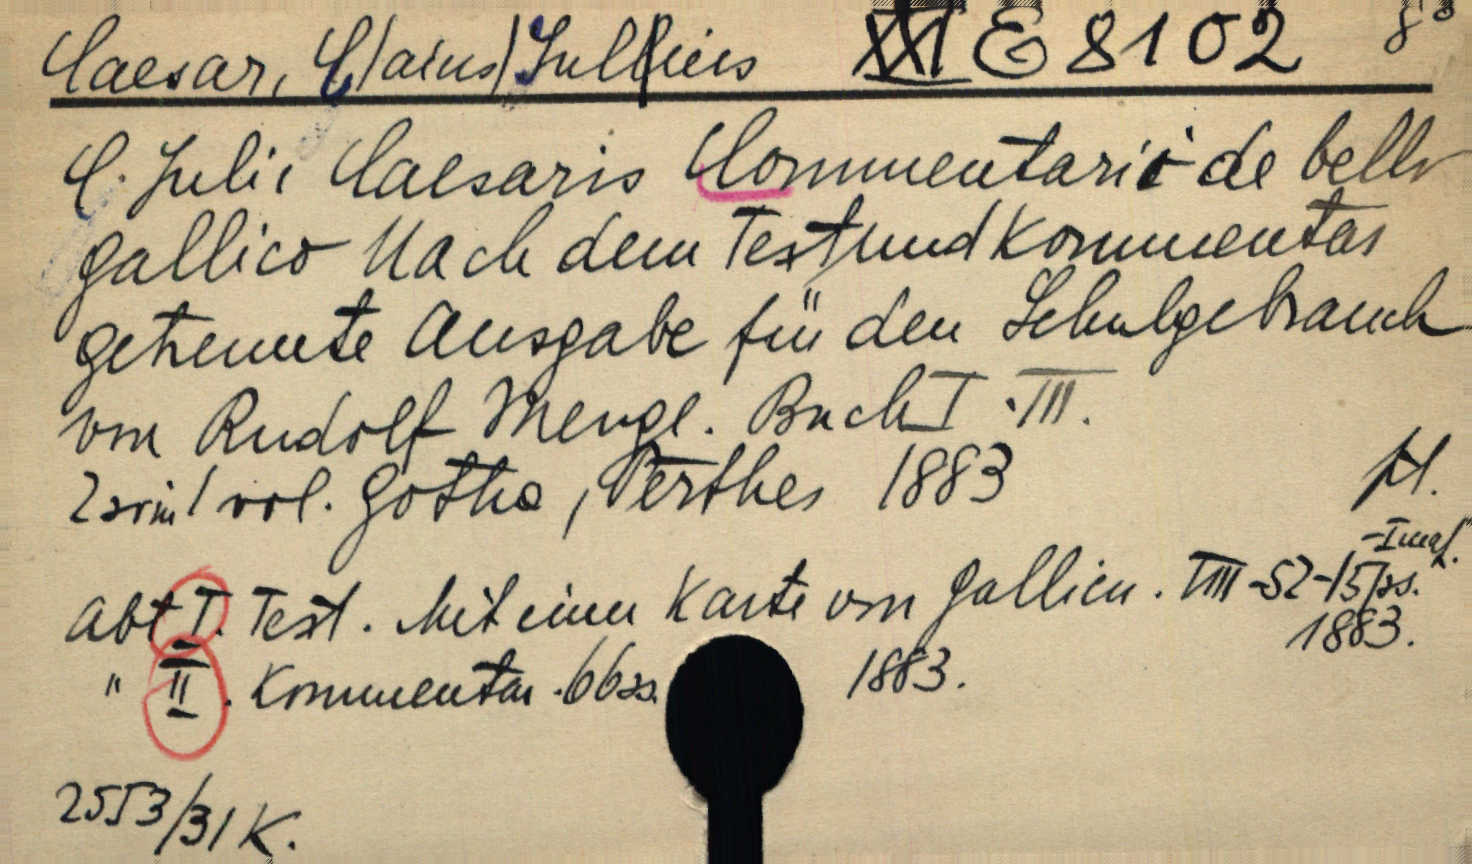 Caesar, C/aius/ Julius XXI E 8102 8°
C. Julii Caesaris Commentarii de bello
gallico Nach dem Text und Kommentar
getrennte Ausgabe für den Schulgebrauch
von Rudolf Menge. Buch I-III.
2 in 1 vol. Gotha, Perthes 1883
Abt I. Text. Mit einer Karte von Gallien. VIII-52-15 ss.
1883.
" II. Kommentar. 66 ss. 1883.
2553/31 K.